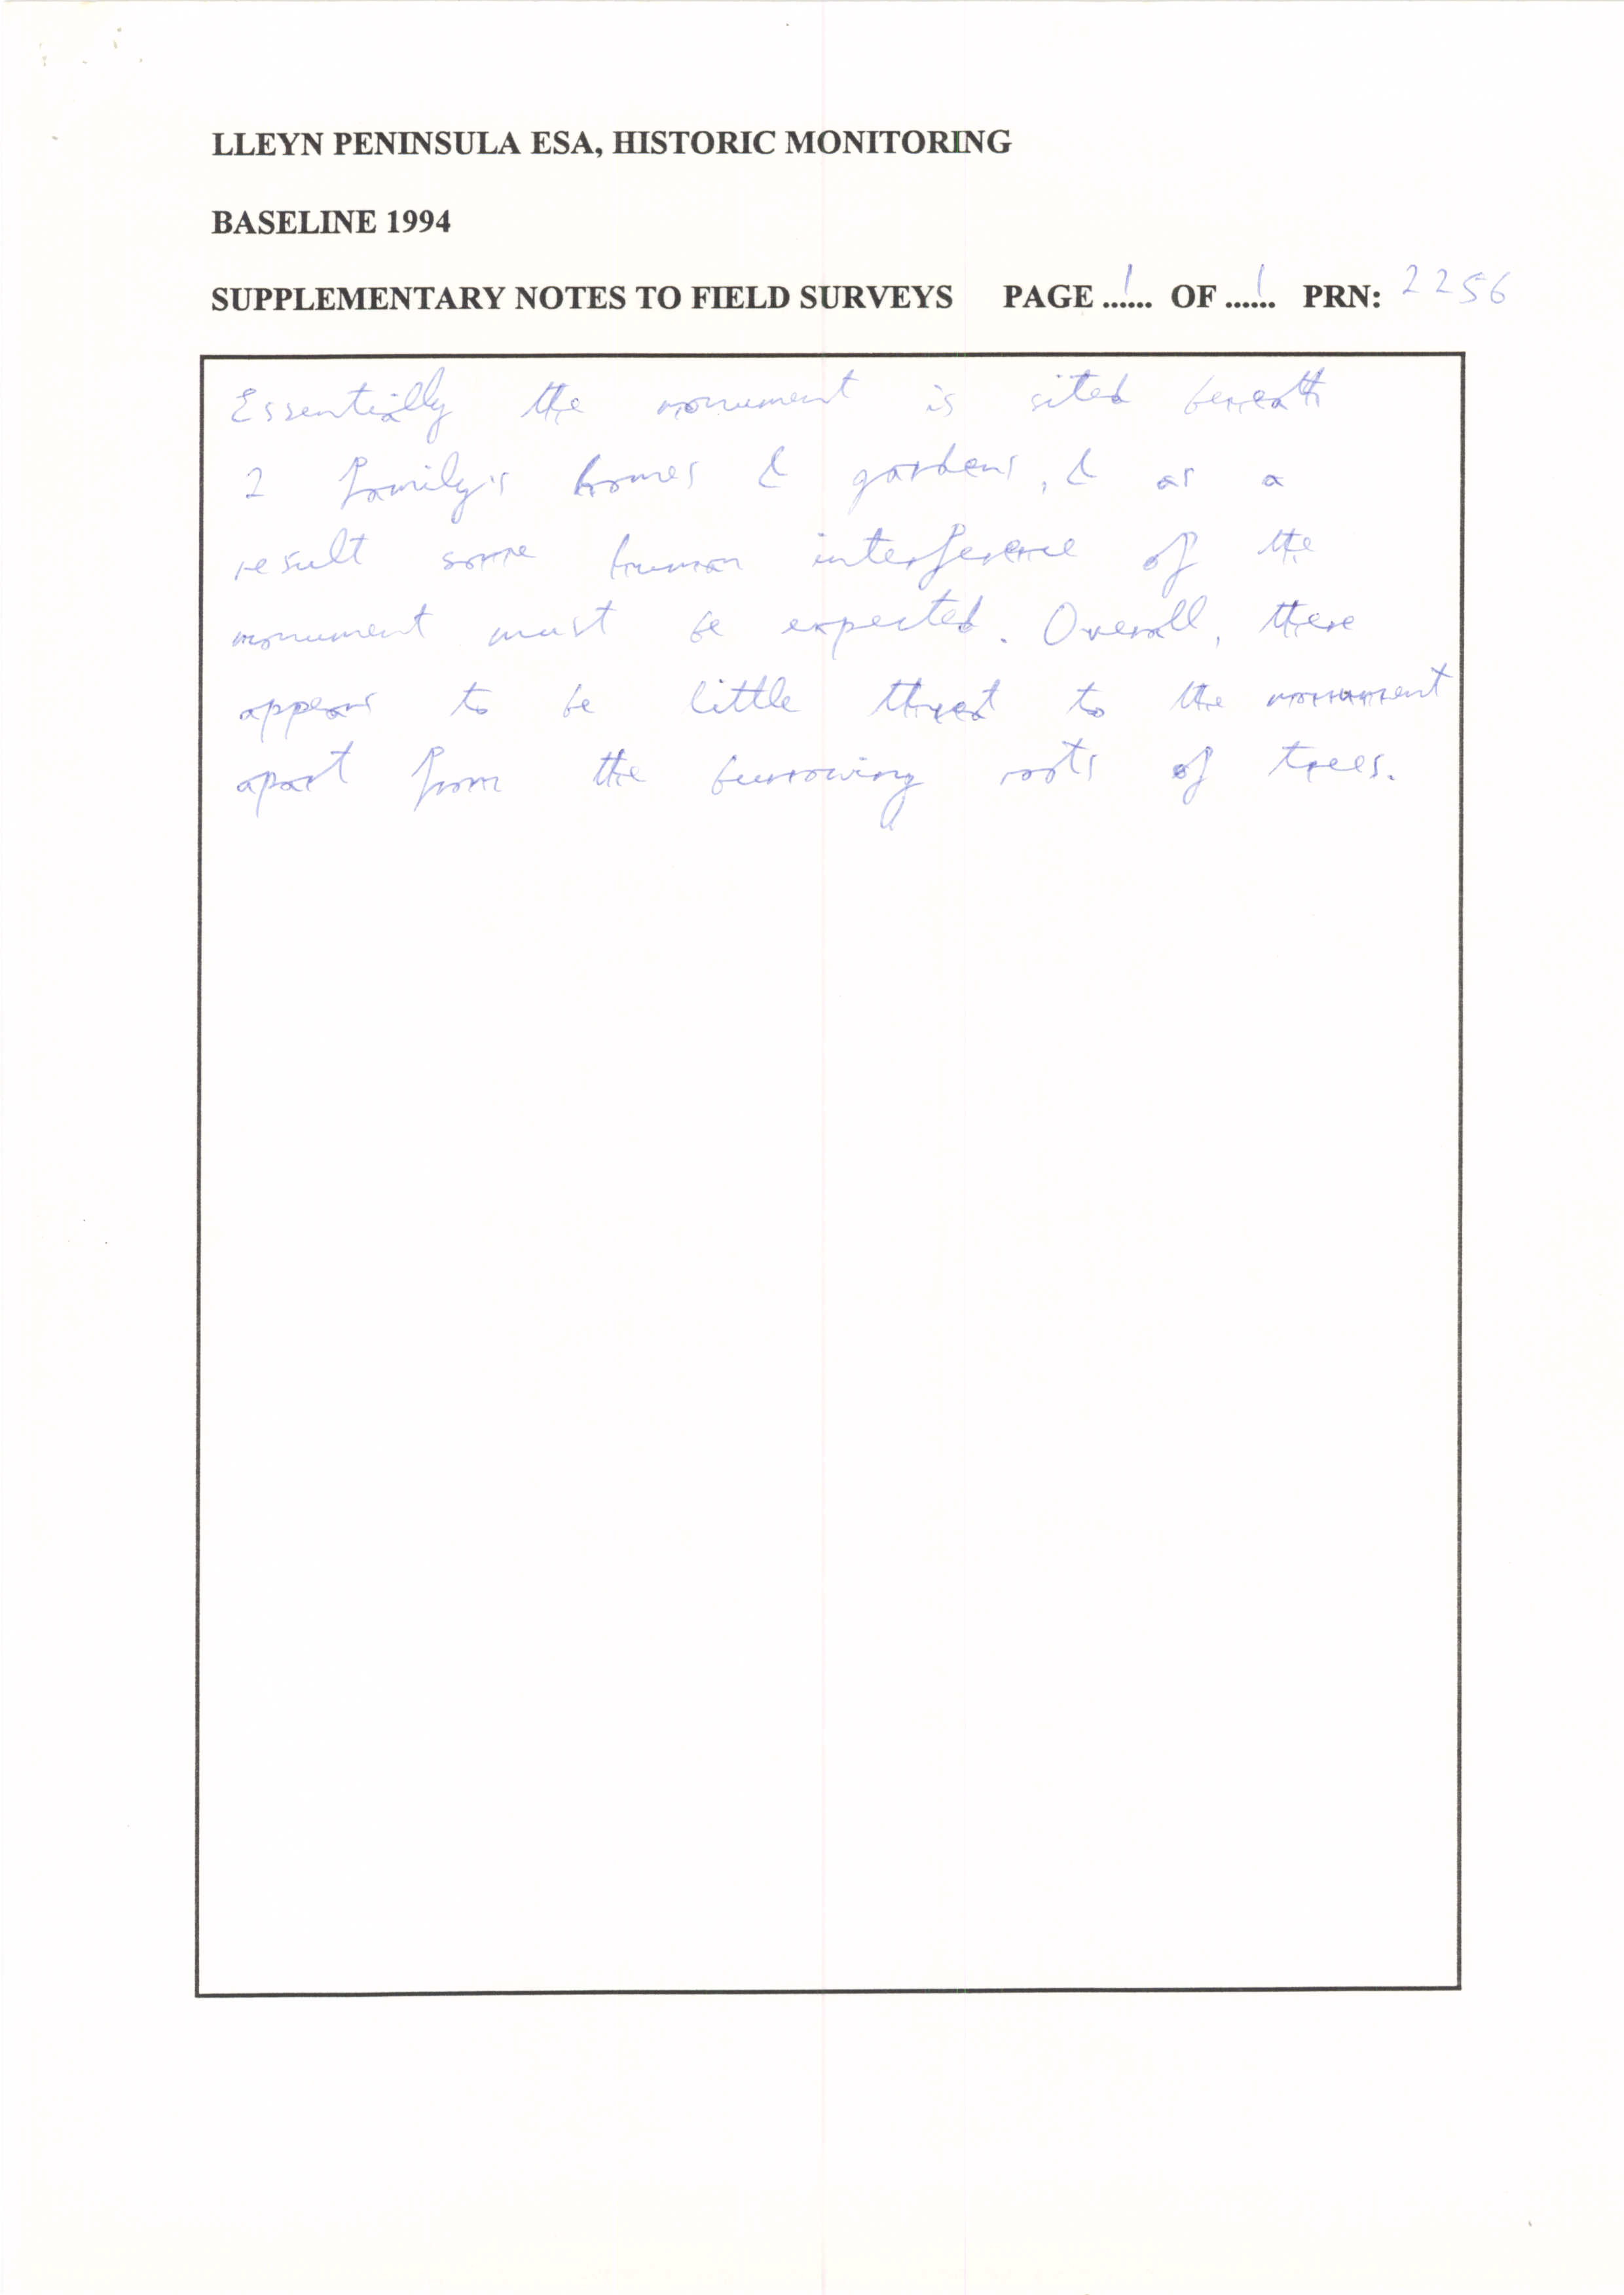 LLEYN PENINSULA ESA, HISTORIC MONITORING
BASELINE 1994
SUPPLEMENTARY NOTES TO FIELD SURVEYS PAGE ...1... OF ...1... PRN: 2256
Essentially the monument is sited beneath
2 family's homes & gardens, & as a
result some human interference of the
monument must be expected. Overall, there
appears to be little threat to the monument
apart from the burrowing roots of trees.